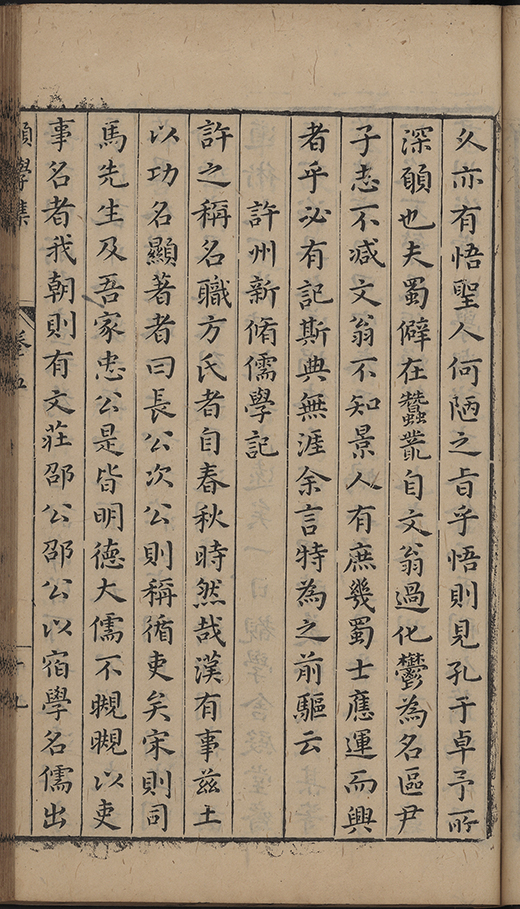 久亦有悟聖人何陋之旨乎悟則見孔于卓予所
深願也夫蜀僻在蠶叢自文翁過化鬱為名區尹
子志不減文翁不知景人有庶幾蜀士應運而興
者乎必有記斯典無涯余言特為之前驅云
許州新脩儒學記
許之稱名職方氏者自春秋時然哉漢有事茲土
以功名顯著者曰長公次公則稱循吏矣宋則司
馬先生及吾家忠公是皆明德大儒不覬覬以吏
事名者我朝則有文莊邵公邵公以宿學名儒出
學集
卷五
十九